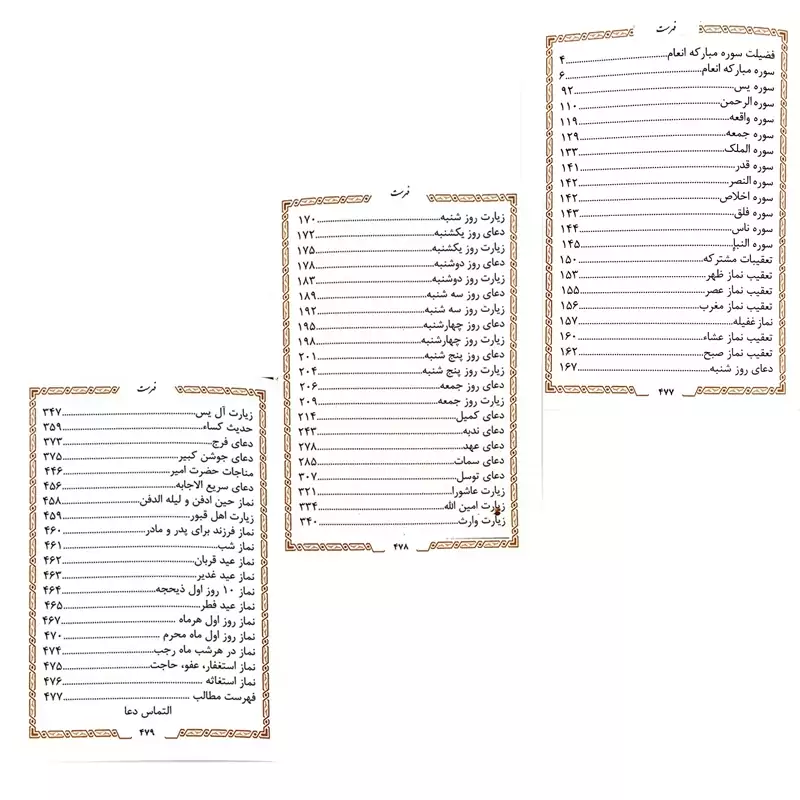 فهرست
فضیلت سوره مبارکه انعام....................۴
سوره مبارکه انعام....................۶
سوره یس....................۹۲
سوره الرحمن....................۱۱۰
سوره واقعه....................۱۱۹
سوره جمعه....................۱۲۹
سوره الملک....................۱۳۳
سوره قدر....................۱۴۱
سوره النصر....................۱۴۲
سوره اخلاص....................۱۴۲
سوره فلق....................۱۴۳
سوره ناس....................۱۴۴
سوره النبإ....................۱۴۵
تعقیبات مشترکه....................۱۵۰
تعقیب نماز ظهر....................۱۵۳
تعقیب نماز عصر....................۱۵۵
تعقیب نماز مغرب....................۱۵۶
نماز غفیله....................۱۵۷
تعقیب نماز عشاء....................۱۶۰
تعقیب نماز صبح....................۱۶۲
دعای روز شنبه....................۱۶۷
۴۷۷
فهرست
زیارت روز شنبه....................۱۷۰
دعای روز یکشنبه....................۱۷۲
زیارت روز یکشنبه....................۱۷۵
دعای روز دوشنبه....................۱۷۸
زیارت روز دوشنبه....................۱۸۳
دعای روز سه شنبه....................۱۸۹
زیارت روز سه شنبه....................۱۹۲
دعای روز چهارشنبه....................۱۹۵
زیارت روز چهارشنبه....................۱۹۸
دعای روز پنج شنبه....................۲۰۱
زیارت روز پنج شنبه....................۲۰۴
دعای روز جمعه....................۲۰۶
زیارت روز جمعه....................۲۰۹
دعای کمیل....................۲۱۴
دعای ندبه....................۲۴۳
دعای عهد....................۲۷۸
دعای سمات....................۲۸۵
دعای توسل....................۳۰۷
زیارت عاشورا....................۳۲۱
زیارت امین الله....................۳۳۴
زیارت وارث....................۳۴۰
۴۷۸
فهرست
زیارت آل یس....................۳۴۷
حدیث کساء....................۳۵۹
دعای فرج....................۳۷۳
دعای جوشن کبیر....................۳۷۵
مناجات حضرت امیر....................۴۴۶
دعای سریع الاجابه....................۴۵۶
نماز حین ادفن و لیله الدفن....................۴۵۸
زیارت اهل قبور....................۴۵۹
نماز فرزند برای پدر و مادر....................۴۶۰
نماز شب....................۴۶۱
نماز عید قربان....................۴۶۲
نماز عید غدیر....................۴۶۳
نماز ۱۰ روز اول ذیحجه....................۴۶۴
نماز عید فطر....................۴۶۵
نماز روز اول هرماه ....................۴۶۷
نماز روز اول ماه محرم ....................۴۷۰
نماز در هرشب ماه رجب....................۴۷۴
نماز استغفار، عفو، حاجت....................۴۷۵
نماز استغاثه ....................۴۷۶
فهرست مطالب ....................۴۷۷
التماس دعا
۴۷۹